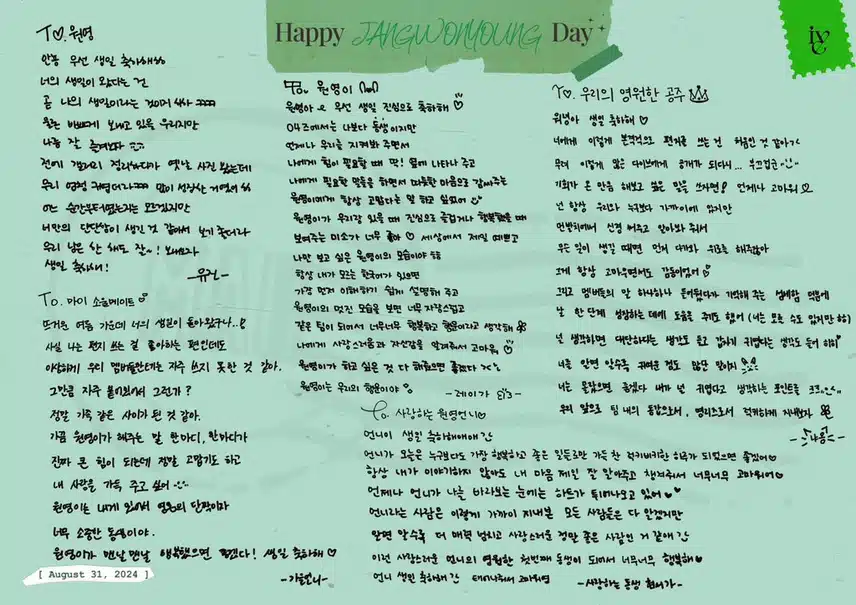 Happy JANGWONYOUNG Day
ive
To. 원영
안농 우선 생일 축하해
너의 생일이 왔다는 건
곧 나의 생일이라는 것이며
물론 바쁘게 보내고 있을 우리지만
나름 잘
전에 갤러리 정리하다가 옛날 사진 봤는데
우리 엄청 많이 성장한 거였어
어느 순간부터였는지는 모르겠지만
너만의 단단함이 생긴 것 같아서 보기 좋더라
우리 남은 한 해도 잘~! 보내보자
생일 축하해!
-유진-
To. 마이 소울메이트
뜨거운 여름 가운데 너의 생일이 돌아왔구나..!
사실 나는 편지 쓰는 걸 좋아하는 편인데도
이상하게 우리 멤버들한테는 자주 쓰지 못한 것 같아.
그만큼 자주 붙어있어서 그런가?
정말 가족 같은 사이가 된 것 같아.
가끔 원영이가 해주는 말 한마디, 한마디가
진짜 큰 힘이 되는데 정말 고맙기도 하고
내 사랑을 가득 주고 싶어
원영이는 내게 있어서 영원의 단짝이자
너무 소중한 동생이야.
원영이가 맨날맨날 행복했으면 좋겠다! 생일 축하해♡
-가을언니-
[ August 31, 2024 ]
To. 원영이
원영아 우선 생일 진심으로 축하해♡
04즈에서는 나보다 동생이지만
언제나 우리를 지켜봐 주면서
나에게 힘이 필요할 때 딱! 옆에 나타나 주고
나에게 필요한 말들을 하면서 따뜻한 마음으로 감싸주는
원영이에게 항상 고맙다는 말 하고 싶었어
원영이가 우리랑 있을 때 진심으로 즐겁거나 행복했을 때
보여주는 미소가 너무 좋아♡ 세상에서 제일 예쁘고
나만 보고 싶은 원영이의 모습이야
항상 내가 모르는 한국어가 있으면
가장 먼저 이해하기 쉽게 설명해 주고
원영이의 멋진 모습을 보면 너무 자랑스럽고
같은 팀이 되어서 너무너무 행복하고 행운이라고 생각해
나에게 사랑스러움과 자신감을 알려줘서 고마워♡
원영이가 하고 싶은 것 다 해줬으면 좋겠다
원영이는 우리의 행운이야
-레이가
To. 우리의 영원한 공주
워녕아 생일 축하해♡
너에게 이렇게 본격적으로 편지를 쓰는 건 처음인 것 같아
무려 이렇게 많은 다이브에게 공개가 되다니... 부끄럽군
기회가 온 만큼 해보고 싶은 말을 쓰자면! 언제나 고마워♡
넌 항상 우리와 누구보다 가까이에 있지만
언방에서 신경 써주고 알아봐 줘서
무슨 일이 생길 때면 먼저 다가와 위로를 해주잖아
그게 항상 고마우면서도 감동이었어
그리고 멤버들의 말 하나하나 들어뒀다가 기억해 주는 섬세함 덕분에
날 한 단계 성장하는 데에 도움을 줘기도 했어 (너는 모를 수도 있지만 하)
널 생각하면 대단하다는 생각도 들고 강하게 귀엽다는 생각도 들어 히히
너를 알면 알수록 귀여운 점도 많단 말이지
너는 몰랐으면 좋겠다 내가 널 귀엽다고 생각하는 포인트를 크크
우리 앞으로 팀 내의 동갑으로서, 영리즈로서 럭키하게 지내보자
-리즈-
To. 사랑하는 원영언니♡
언니이 생일 축하해애애
언니가 오늘은 누구보다도 가장 행복하고 좋은 일들로만 가득 찬 럭키비키한 하루가 되었으면 좋겠어♡
항상 내가 이야기하지 않아도 내 마음 제일 잘 알아주고 챙겨줘서 너무너무 고마워어♡
언제나 언니가 나를 바라보는 눈에는 하트가 튀어나오고 있어
언니라는 사람은 이렇게 가까이 지내본 모든 사람들은 다 알겠지만
알면 알수록 더 매력 넘치고 사랑스러운 정말 좋은 사람인 거 같애
이런 사랑스러운 언니의 영원한 첫번째 동생이 되어서 너무너무 행복해♡
언니 생일 축하해 태어나줘서 고마워
-사랑하는 동생 현서가-